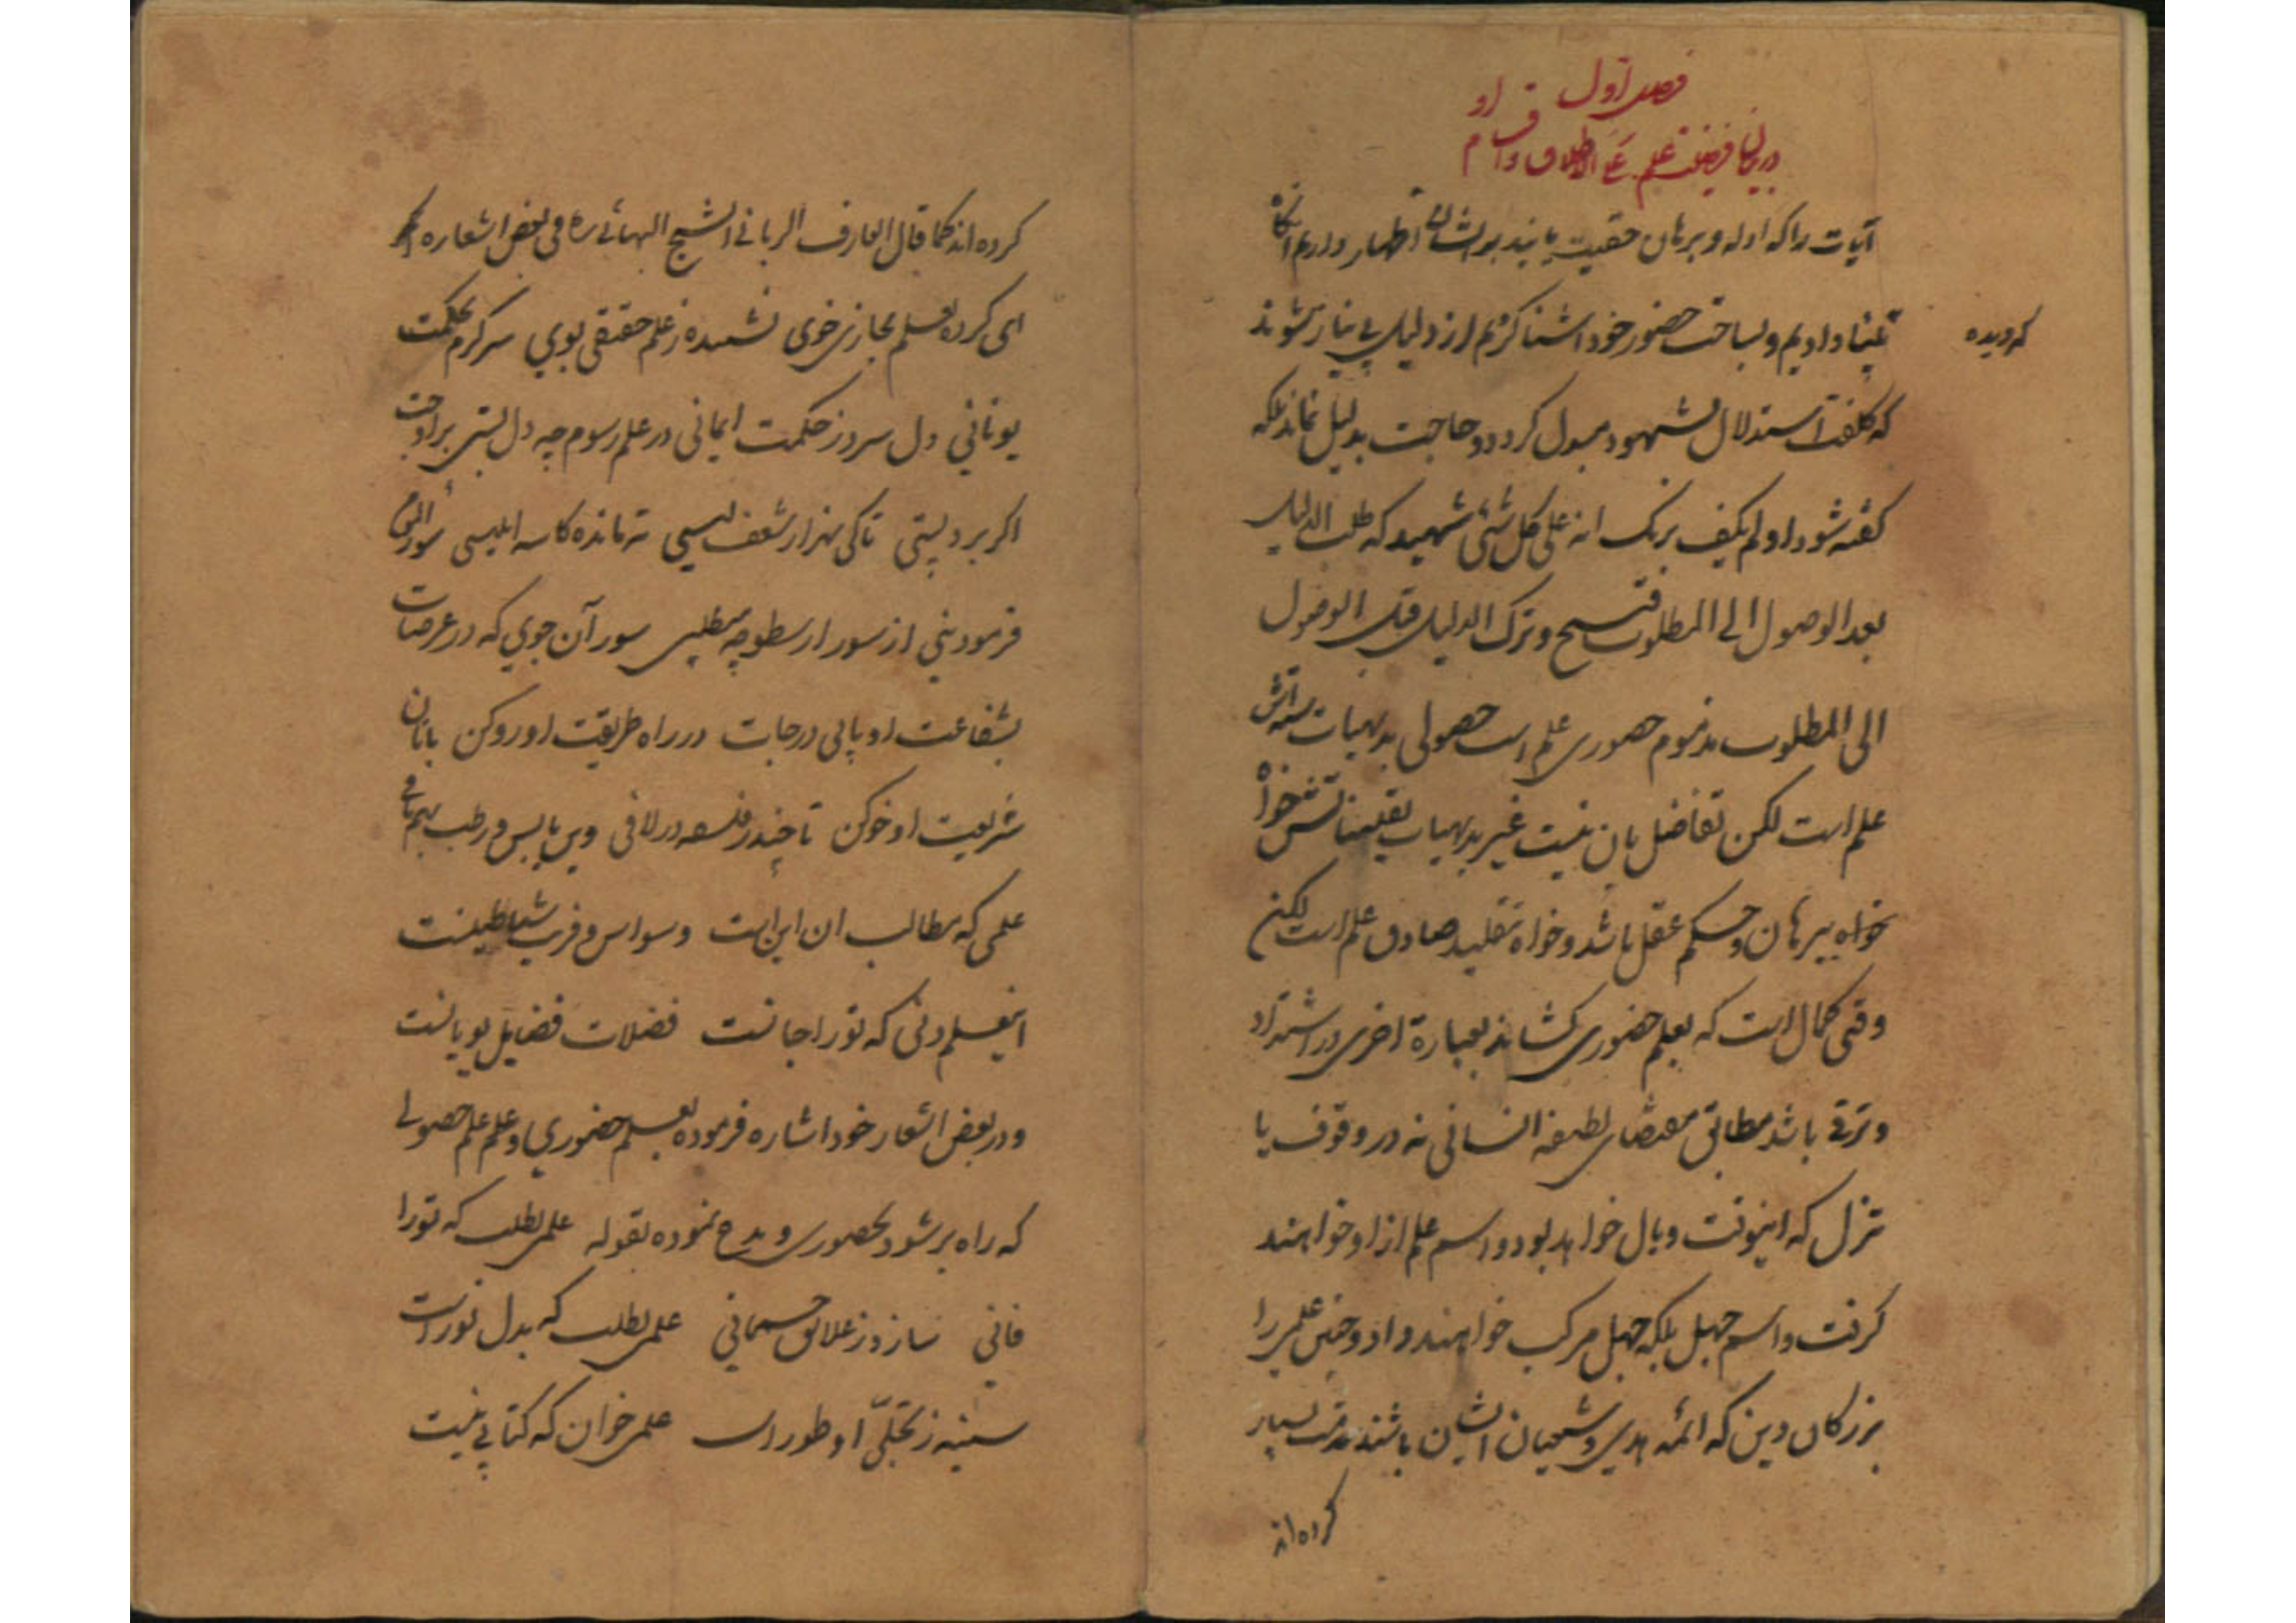 فصل اول
در بیان فضیلت علم علی الاطلاق و اقسام او
آیات را که ادله و برهان حقیت یابند بر ایشان اظهار داریم آنگاه
بینا دادیم و بساحت حضور خود اشنا کردیم از دلیل بی نیاز شوند
که دیده
که کلفت استدلال بشهود مبدل کردد و حاجت بدلیل نماند بلکه
کفته شود اولم یکف بربک انه علی کل شئی شهید که طلب الدلیل
بعد الوصول الی المطلوب قبیح و ترک الدلیل قبل الوصول
الی المطلوب مذموم حضوری علم است حصولی بدیهیات
علم است لکن تفاضل بان نیست غیر بدیهیات یقینیاتش خواه
خواه ببرهان و حکم عقل باشد و خواه بتقلید صادق علم است لکن
وقتی کمال است که بعلم حضوری کشاند بعبارة اخری در اشتداد
و ترقی باشد مطابق مقتضای لطیفه انسانی نه در وقوف یا
تنزل که اینوقت وبال خواهد بود و اسم علم از او خواهند
کرفت و اسم جهل بلکه جهل مرکب خواهند داد و چنین علمی را
بزرکان دین که ائمه هدی و شیعیان ایشان باشند مذمت بسیار
کرده اند
کرده اند کما قال العارف الربانی الشیخ البهائی ره فی بعض اشعاره
ای کرده بعلم مجازی خوی نشنیده ز علم حقیقی بوی سرکرم بحکمت
یونانی دل سرد ز حکمت ایمانی در علم رسوم چه دل بستی بر اوجت
اکر برد پستی تا کی بهزار شعف لیسی ته مانده کاسه ابلیسی سور المؤمن
فرمود نبی از سور ارسطو چه میطلبی سور آن جوی که در عرصات
بشفاعت او یابی درجات در راه طریقت او رو کن با نان
شریعت او خو کن تا چند ز فلسفه در لافی وین یابس و رطب بهم بافی
علمی که مطالب ان این است وسواس و فریب شیاطینست
اینعلم دنی که تو را جانست فضلات فضایل یونانست
و در بعض اشعار خود اشاره فرموده بعلم حضوری و علم علم حصولی
که راه بر شود بحضوری و مدح نموده بقوله علمی بطلب که تو را
فانی سازد ز علائق جسمانی علمی بطلب که بدل نور است
سینه ز تجلّی او طور است علمی خوان که کتابی نیست